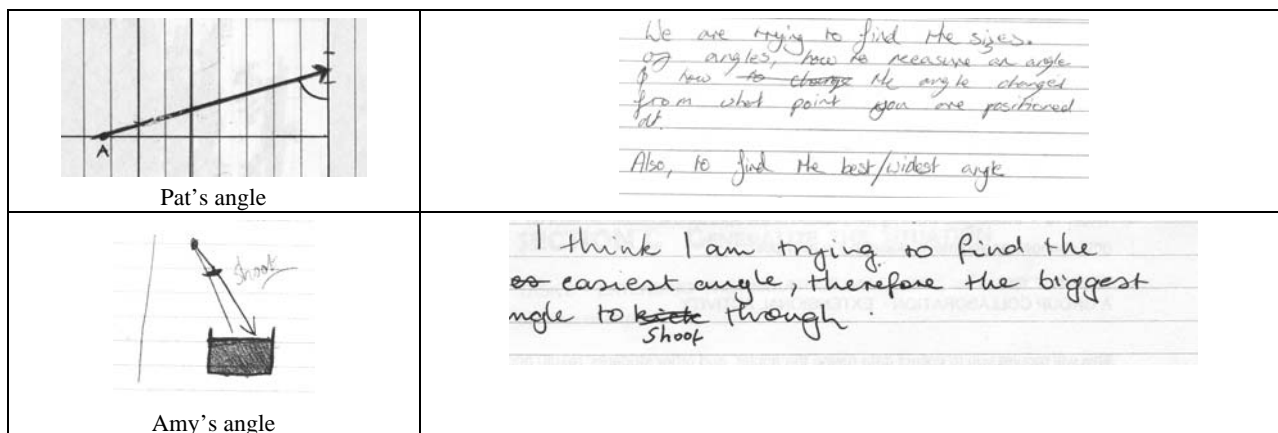 A
Pat's angle
We are trying to find the sizes.
of angles, how to measure an angle
& how to change the angle changed
from what point you are positioned
at.
Also, to find the best/widest angle
Shoot
Amy's angle
I think I am trying to find the
easiest angle, therefore the biggest
angle to kick through.
Shoot